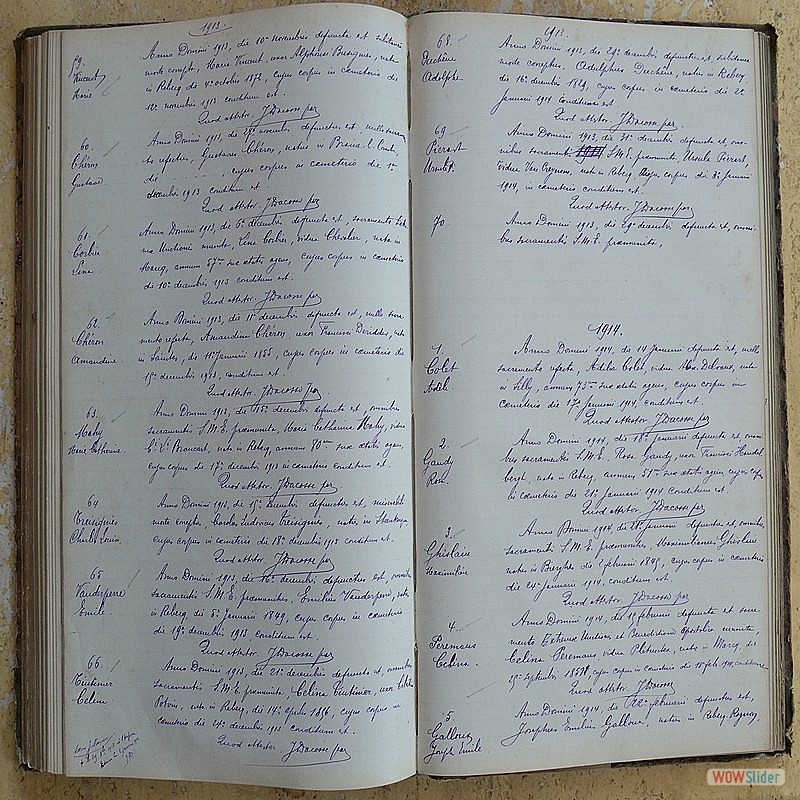 1913.
59.
Vincent
Marie
Anno Domini 1913, die 10a novembris defuncta est subitanea
morte correpta, Maria Vincent, uxor Alphonsi Busignies, nata
in Rebecq die 4a octobris 1872, cujus corpus in cœmeterio die
12a novembris 1913 conditum est.
Quod attestor J Dacosse par
60.
Chéron
Gustave
Anno Domini 1913, die defunctus est, nullo sacramen-
to refectus, Gustavus Chéron, natus in Braine-l.-Comte,
die , cujus corpus in cœmeterio die 1a
decembris 1913 conditum est.
Quod attestor J Dacosse par
61.
Corbier
Lina
Anno Domini 1913, die 6a decembris defuncta est, sacramento Extre-
mæ Unctionis munita, Lina Corbier, vidua Chevalier, nata in
Marcq, annum 57um suæ ætatis agens, cujus corpus in cœmeterio
die 10a decembris 1913 conditum est.
Quod attestor J Dacosse par
62.
Chéron
Amandine
Anno Domini 1913, die 11a decembris defuncta est, nullo sacra-
mento refecta, Amandina Chéron, uxor Francisci Deridder, nata
in Saintes, die 11a Januarii 1855, cujus corpus in cœmeterio die
15a decembris 1913, conditum est.
Quod attestor J Dacosse par
63.
Mahy
Marie Catherine
Anno Domini 1913, die 15a decembris defuncta est, omnibus
sacramentis S.M.E. præmunita, Maria Catharina Mahy, vidua
nata in Rebecq, annum 80um suæ ætatis agens,
cujus corpus die 17a decembris 1913 in cœmeterio conditum est.
Quod attestor J Dacosse par
64
Tresignies
Charles Louis
Anno Domini 1913, die 15a decembris defunctus est, miserabili
morte correptus, Carolus Ludovicus Tresignies, natus in
cujus corpus in cœmeterio die 18a decembris 1913 conditum est.
Quod attestor J Dacosse par
65
Vanderperre
Emile
Anno Domini 1913, die 16a decembris defunctus est, omnibus
sacramentis S.M.E. præmunitus, Emilius Vanderperre, natus
in Rebecq, die 5a Januarii 1849, cujus corpus in cœmeterio
die 19a decembris 1913, conditum est.
Quod attestor J Dacosse par
66.
Tintinier
Céline
Anno Domini 1913, die 21a decembris defuncta est, omnibus
sacramentis S.M.E. præmunita, Celina Tintinier, uxor
Potvin, nata in Rebecq, die 14a aprilis 1856, cujus corpus in
cœmeterio die 24a decembris 1913 conditum est.
Quod attestor J Dacosse par
1913.
68.
Duchêne
Adolphe
Anno Domini 1913, die 29a decembris defunctus est subitanea
morte correptus, Adolphus Duchêne, natus in Rebecq,
die 16a decembris 1829, cujus corpus in cœmeterio die 2a
Januarii 1914 conditum est.
Quod attestor J Dacosse par
69
Pierart
Ursule
Anno Domini 1913, die 31a decembris defuncta est, om-
nibus sacramentis S.M.E. præmunita, Ursula Pierart,
vidua Van nata in Rebecq, cujus corpus die 3a Januarii
1914, in cœmeterio conditum est.
Quod attestor J Dacosse par
70.
Anno Domini 1913, die 29a decembris defuncta est, omni-
bus sacramentis S.M.E. præmunita,
1914.
1.
Colet
Adèl.
Anno Domini 1914, die 14 Januarii defuncta est, nullo
sacramento refecta, Adilia Colet, vidua Alex. Delvaux, nata
in Silly, annum 73um suæ ætatis agens, cujus corpus in
cœmeterio die 17a Januarii 1914, conditum est.
Quod attestor J Dacosse par
2.
Gaudy
Rosa.
Anno Domini 1914, die 18a Januarii defuncta est, omni-
bus sacramentis S.M.E. Rosa Gaudy, uxor Francisci
nata in Rebecq, annum 51um suæ ætatis agens, cujus corpus
in cœmeterio die 21a Januarii 1914 conditum est.
Quod attestor J Dacosse par
3.
Ghislain
Maximilien
Anno Domini 1914, die 21a Januarii defunctus est, omnibus
sacramentis S.M.E. præmunitus, Maximilianus Ghislain,
natus in Bierghes die 1a februarii 1845, cujus corpus in cœmeterio
die 24a Januarii 1914, conditum est.
Quod attestor J Dacosse par
4.
Peremans
Celina.
Anno Domini 1914, die 15 februarii defuncta est sacra-
mento Extremæ Unctionis et Benedictione Apostolica munita,
Celina Peremans vidua nata in Marcq, die
25a septembris cujus corpus in cœmeterio die 18a feb. 1914, conditum est
Quod attestor J Dacosse
5
Galloux
Joseph Emile.
Anno Domini 1914, die februarii defunctus est,
Josephus Emilius Galloux, natus in Rebecq-Rognon,
WOWSlider